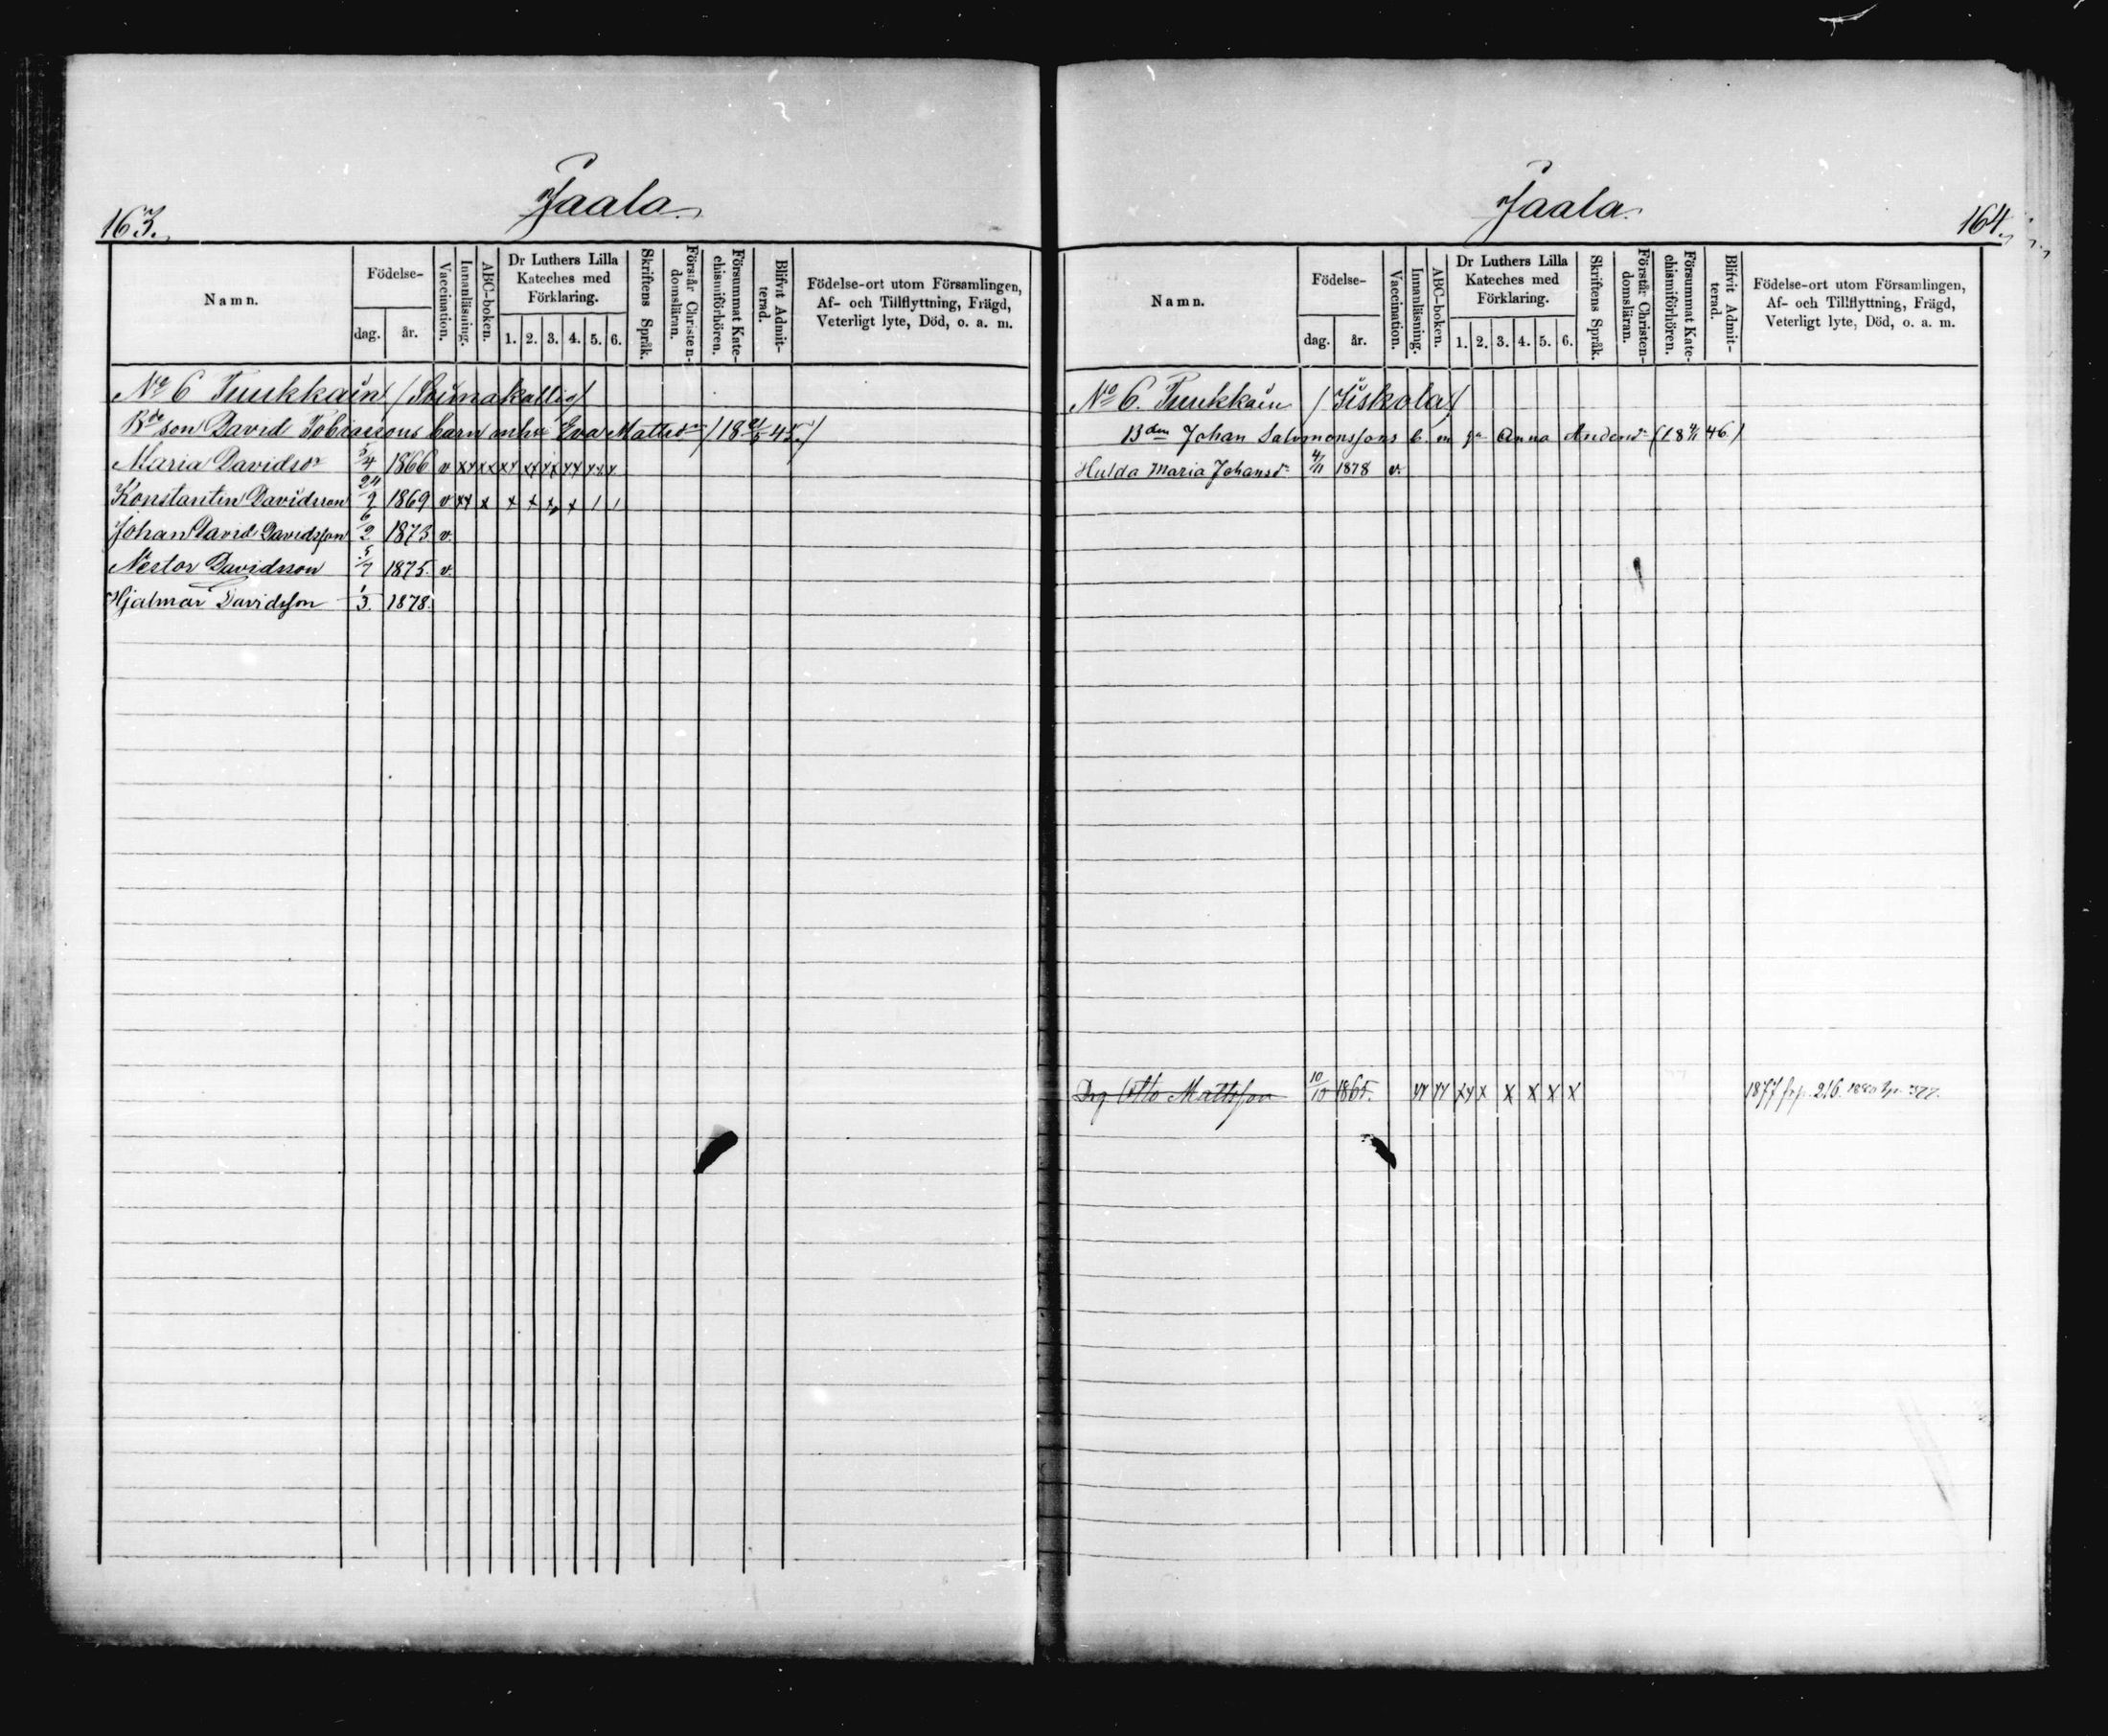 163.
Jaala.
Namn.
Födelse-
dag.
år.
Vaccination.
Innanläsning.
ABC-boken.
Dr Luthers Lilla
Kateches med
Förklaring.
1. 2. 3. 4. 5. 6.
Skriftens Språk.
Förstår Christen-
domsläran.
Försummat Kate-
chismiförhören.
Blifvit Admit-
terad.
Födelse-ort utom Församlingen,
Af- och Tillflyttning, Frägd,
Veterligt lyte, Död, o. a. m.
No 6
Bdeson David Tobiassons barn Eva Mattsdr
Maria Davidsdr 5/4 1866 v
Konstantin Davidsson 24/2 1869 v xx x x x x x 1 1
Johan David Davidsson 6/2 1873. v.
Nestor Davidsson 5/7 1875. v.
Hjalmar Davidsson 1/3. 1878.
Jaala.
164.
Namn.
Födelse-
dag.
år.
Vaccination.
Innanläsning.
ABC-boken.
Dr Luthers Lilla
Kateches med
Förklaring.
1. 2. 3. 4. 5. 6.
Skriftens Språk.
Förstår Christen-
domsläran.
Försummat Kate-
chismiförhören.
Blifvit Admit-
terad.
Födelse-ort utom Församlingen,
Af- och Tillflyttning, Frägd,
Veterligt lyte, Död, o. a. m.
No 6. /Iiskola/
Bden Johan Salomonssons b. m. Anna Andersdr
Hulda Maria Johansdr 4/11 1878 v.
Otto Mattsson 10/10 1865. x x x x 1877 216. 1880